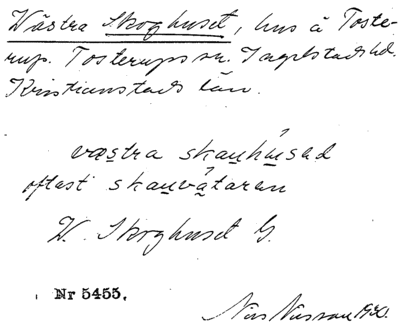 Västra Skoghuset, hus å Toste-
rup. Tosterups sn. Ingelstads hd.
Kristianstads län.
væstra skauhúsed
oftast skauvǻtaren
V. Skoghuset G.
Nr 5455.
1930.